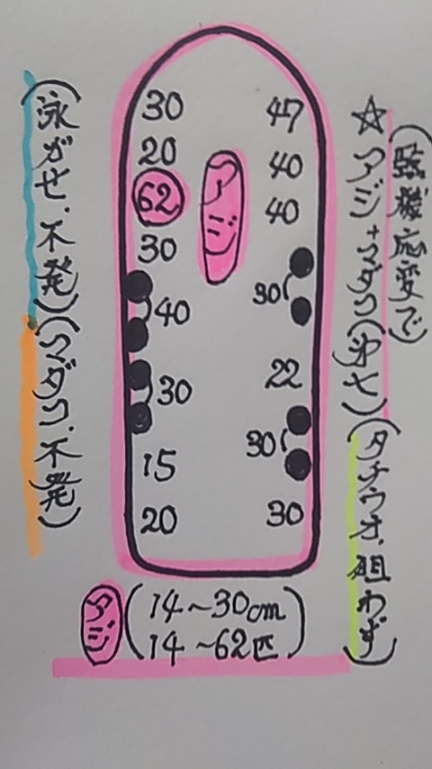 (臨機応変で)
☆アジ+マダコ(第七)(タチウオ、狙わず)
30
20
62
30
40
30
15
20
アジ
47
40
40
30
22
30
30
(泳がせ、不発)(マダコ、不発)
アジ(14~30cm
14~62匹)